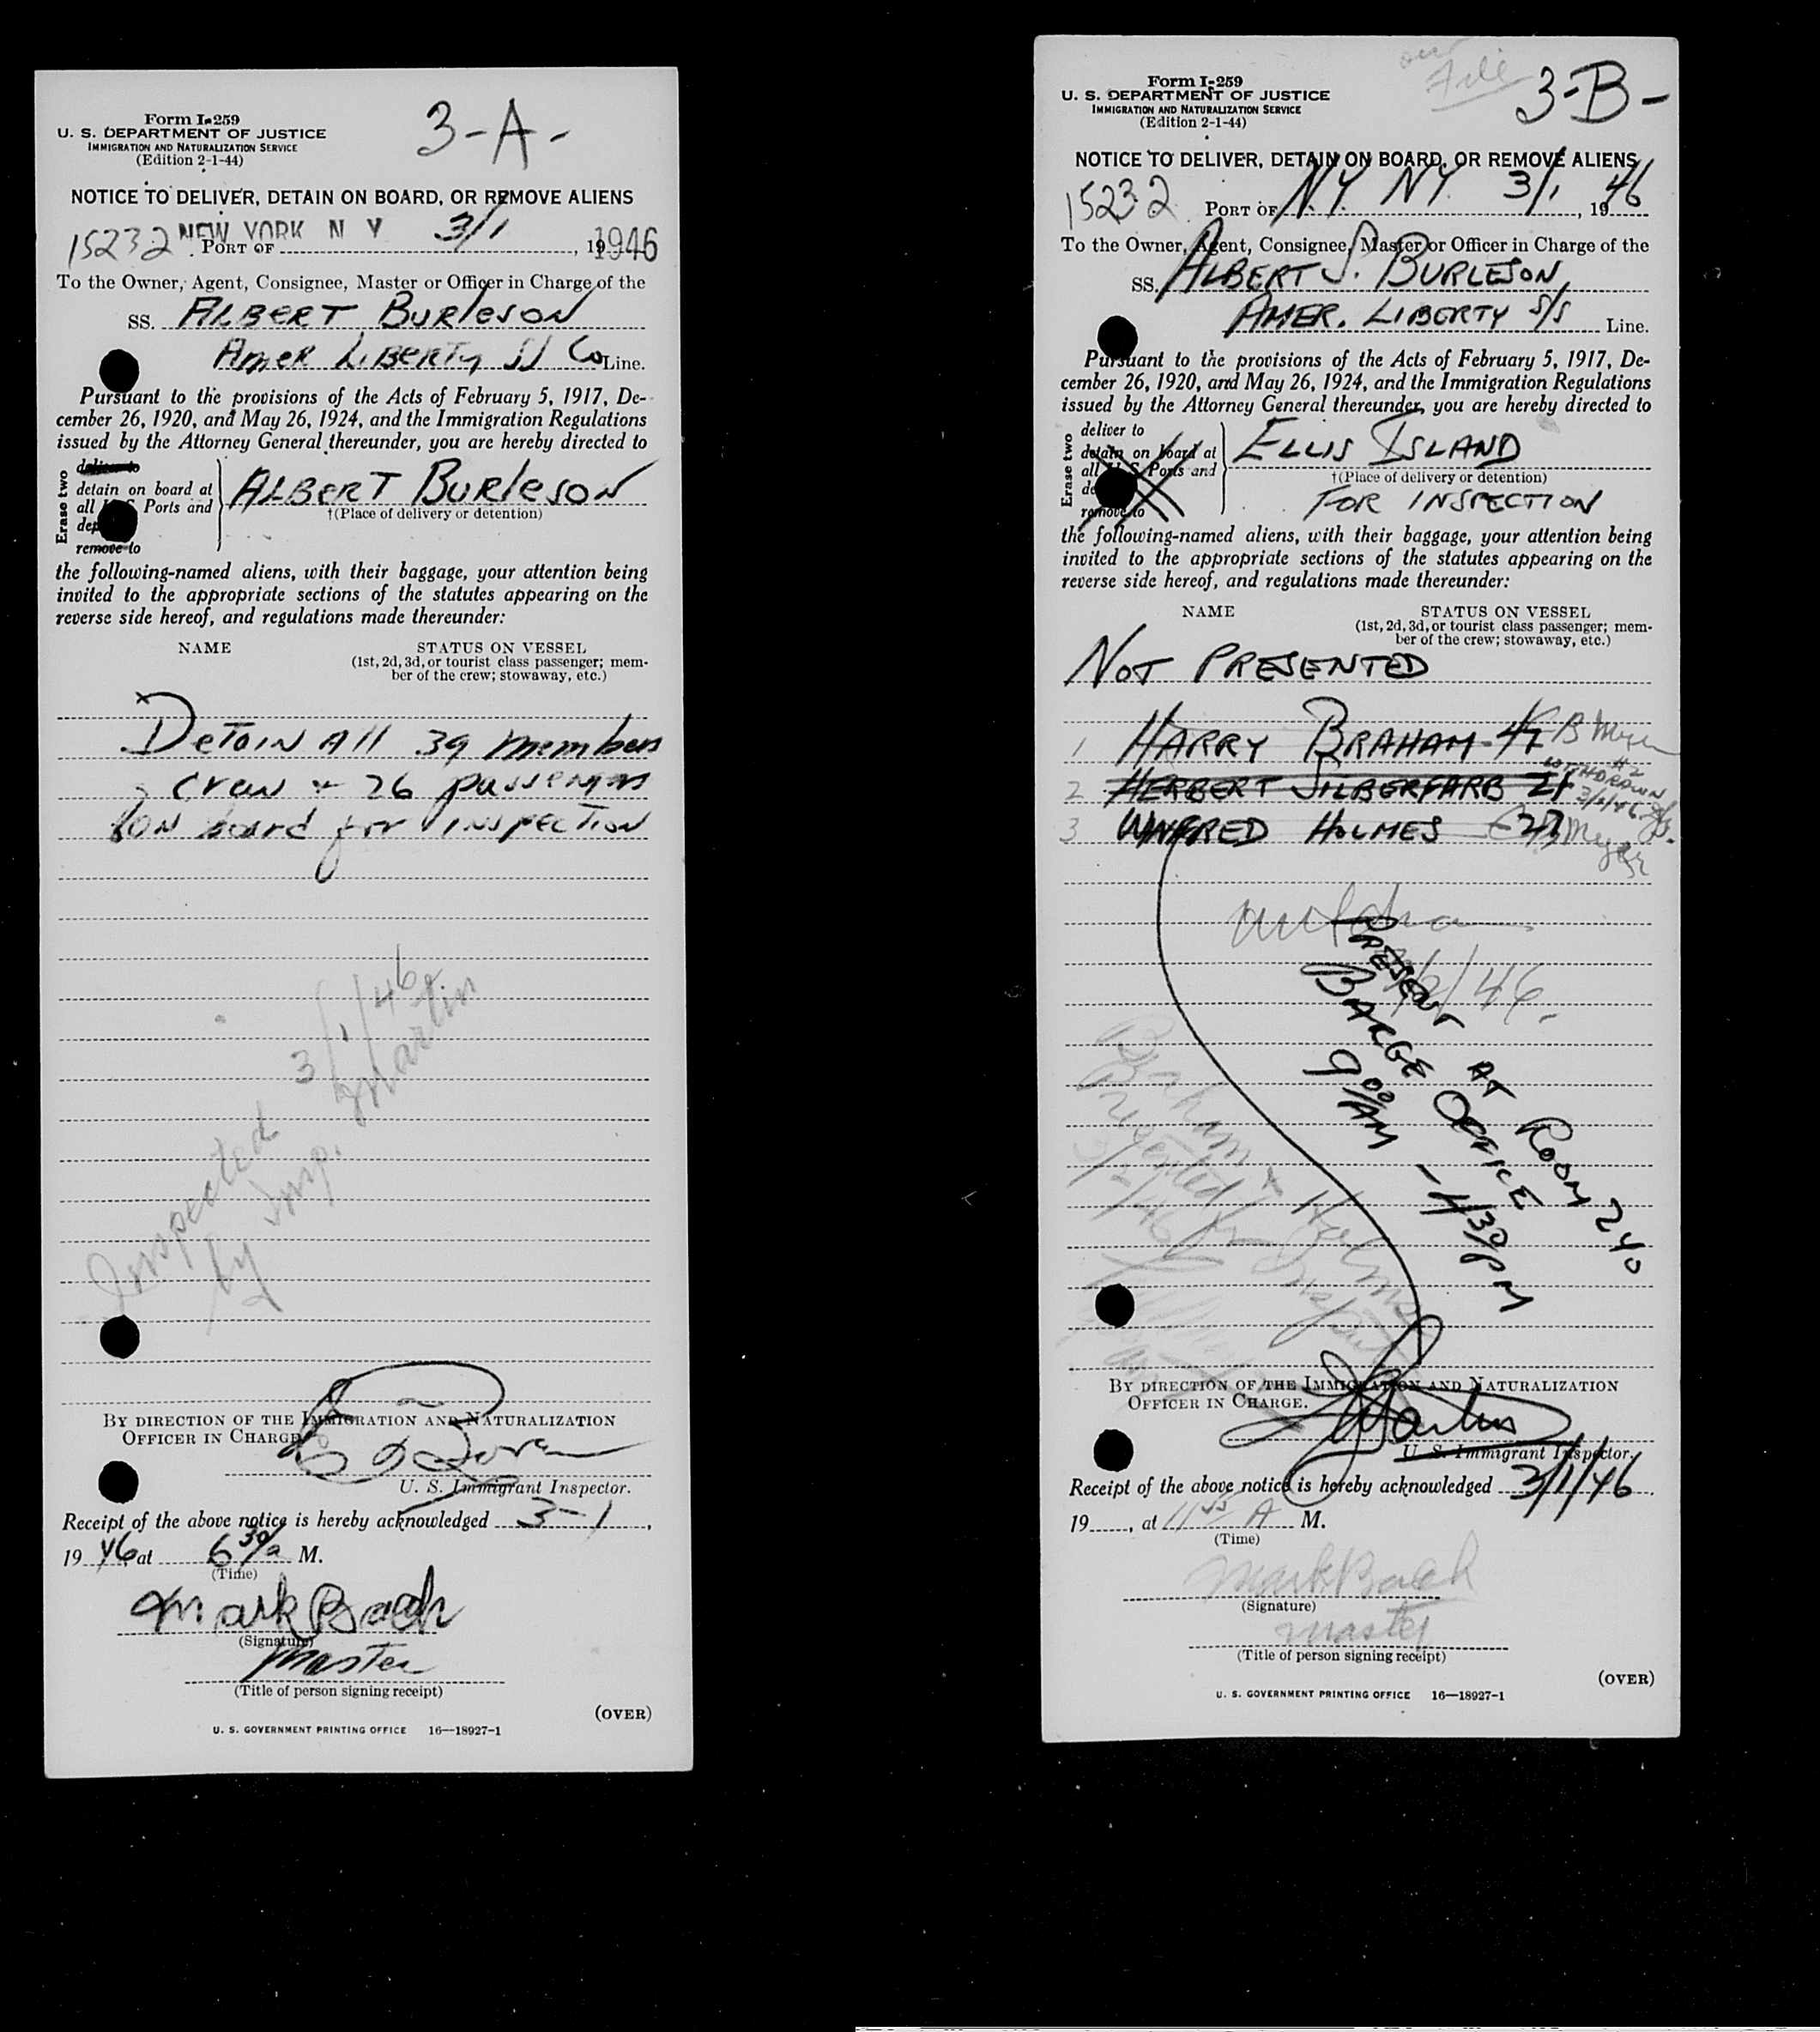 Form I-259
U. S. DEPARTMENT OF JUSTICE
IMMIGRATION AND NATURALIZATION SERVICE
(Edition 2-1-44)
3-A-
NOTICE TO DELIVER, DETAIN ON BOARD, OR REMOVE ALIENS
15232 NEW YORK N Y 3/1
PORT OF , 19 1946
To the Owner, Agent, Consignee, Master or Officer in Charge of the
SS. ALBERT BURLESON
AMER LIBERTY SS Co Line.
Pursuant to the provisions of the Acts of February 5, 1917, De-
cember 26, 1920, and May 26, 1924, and the Immigration Regulations
issued by the Attorney General thereunder, you are hereby directed to
Erase two
deliver to
detain on board at
all Ports and
remove to
ALBERT BURLESON
†(Place of delivery or detention)
the following-named aliens, with their baggage, your attention being
invited to the appropriate sections of the statutes appearing on the
reverse side hereof, and regulations made thereunder:
NAME STATUS ON VESSEL
(1st, 2d, 3d, or tourist class passenger; mem-
ber of the crew; stowaway, etc.)
DETAIN All 39 members
crew + 26 passengers
ON board for INSPECTION
Inspected 3/1/46
by Insp. Martin
BY DIRECTION OF THE IMMIGRATION AND NATURALIZATION
OFFICER IN CHARGE
U. S. Immigrant Inspector.
Receipt of the above notice is hereby acknowledged 3-1,
19 46 at 6 30/a M.
(Time)
Mark Bach
(Signature)
Master
(Title of person signing receipt)
(OVER)
U. S. GOVERNMENT PRINTING OFFICE 16—18927-1
File
Form I-259
U. S. DEPARTMENT OF JUSTICE
IMMIGRATION AND NATURALIZATION SERVICE
(Edition 2-1-44)
3-B-
NOTICE TO DELIVER, DETAIN ON BOARD, OR REMOVE ALIENS
15232 PORT OF N.Y. N.Y. 3/1, 1946
To the Owner, Agent, Consignee, Master or Officer in Charge of the
SS. ALBERT S. BURLESON,
AMER. LIBERTY S/S Line.
Pursuant to the provisions of the Acts of February 5, 1917, De-
cember 26, 1920, and May 26, 1924, and the Immigration Regulations
issued by the Attorney General thereunder, you are hereby directed to
Erase two
deliver to
detain on board at
all U.S. Ports and
remove to
ELLIS ISLAND
†(Place of delivery or detention)
FOR INSPECTION
the following-named aliens, with their baggage, your attention being
invited to the appropriate sections of the statutes appearing on the
reverse side hereof, and regulations made thereunder:
NAME STATUS ON VESSEL
(1st, 2d, 3d, or tourist class passenger; mem-
ber of the crew; stowaway, etc.)
NOT PRESENTED
1 HARRY BRAHAM - 47 B Meyer
2 HERBERT SILBERFARB 21 #2 WITHDRAWN
3 WINFRED HOLMES 27 Meyer
PRESENT AT ROOM 240
BARGE OFFICE
9 00/AM - 1/30/PM
BY DIRECTION OF THE IMMIGRATION AND NATURALIZATION
OFFICER IN CHARGE.
Martin
U. S. Immigrant Inspector.
Receipt of the above notice is hereby acknowledged 3/1/46.
19 , at 11 45 A M.
(Time)
Mark Bach
(Signature)
master
(Title of person signing receipt)
(OVER)
U. S. GOVERNMENT PRINTING OFFICE 16—18927-1